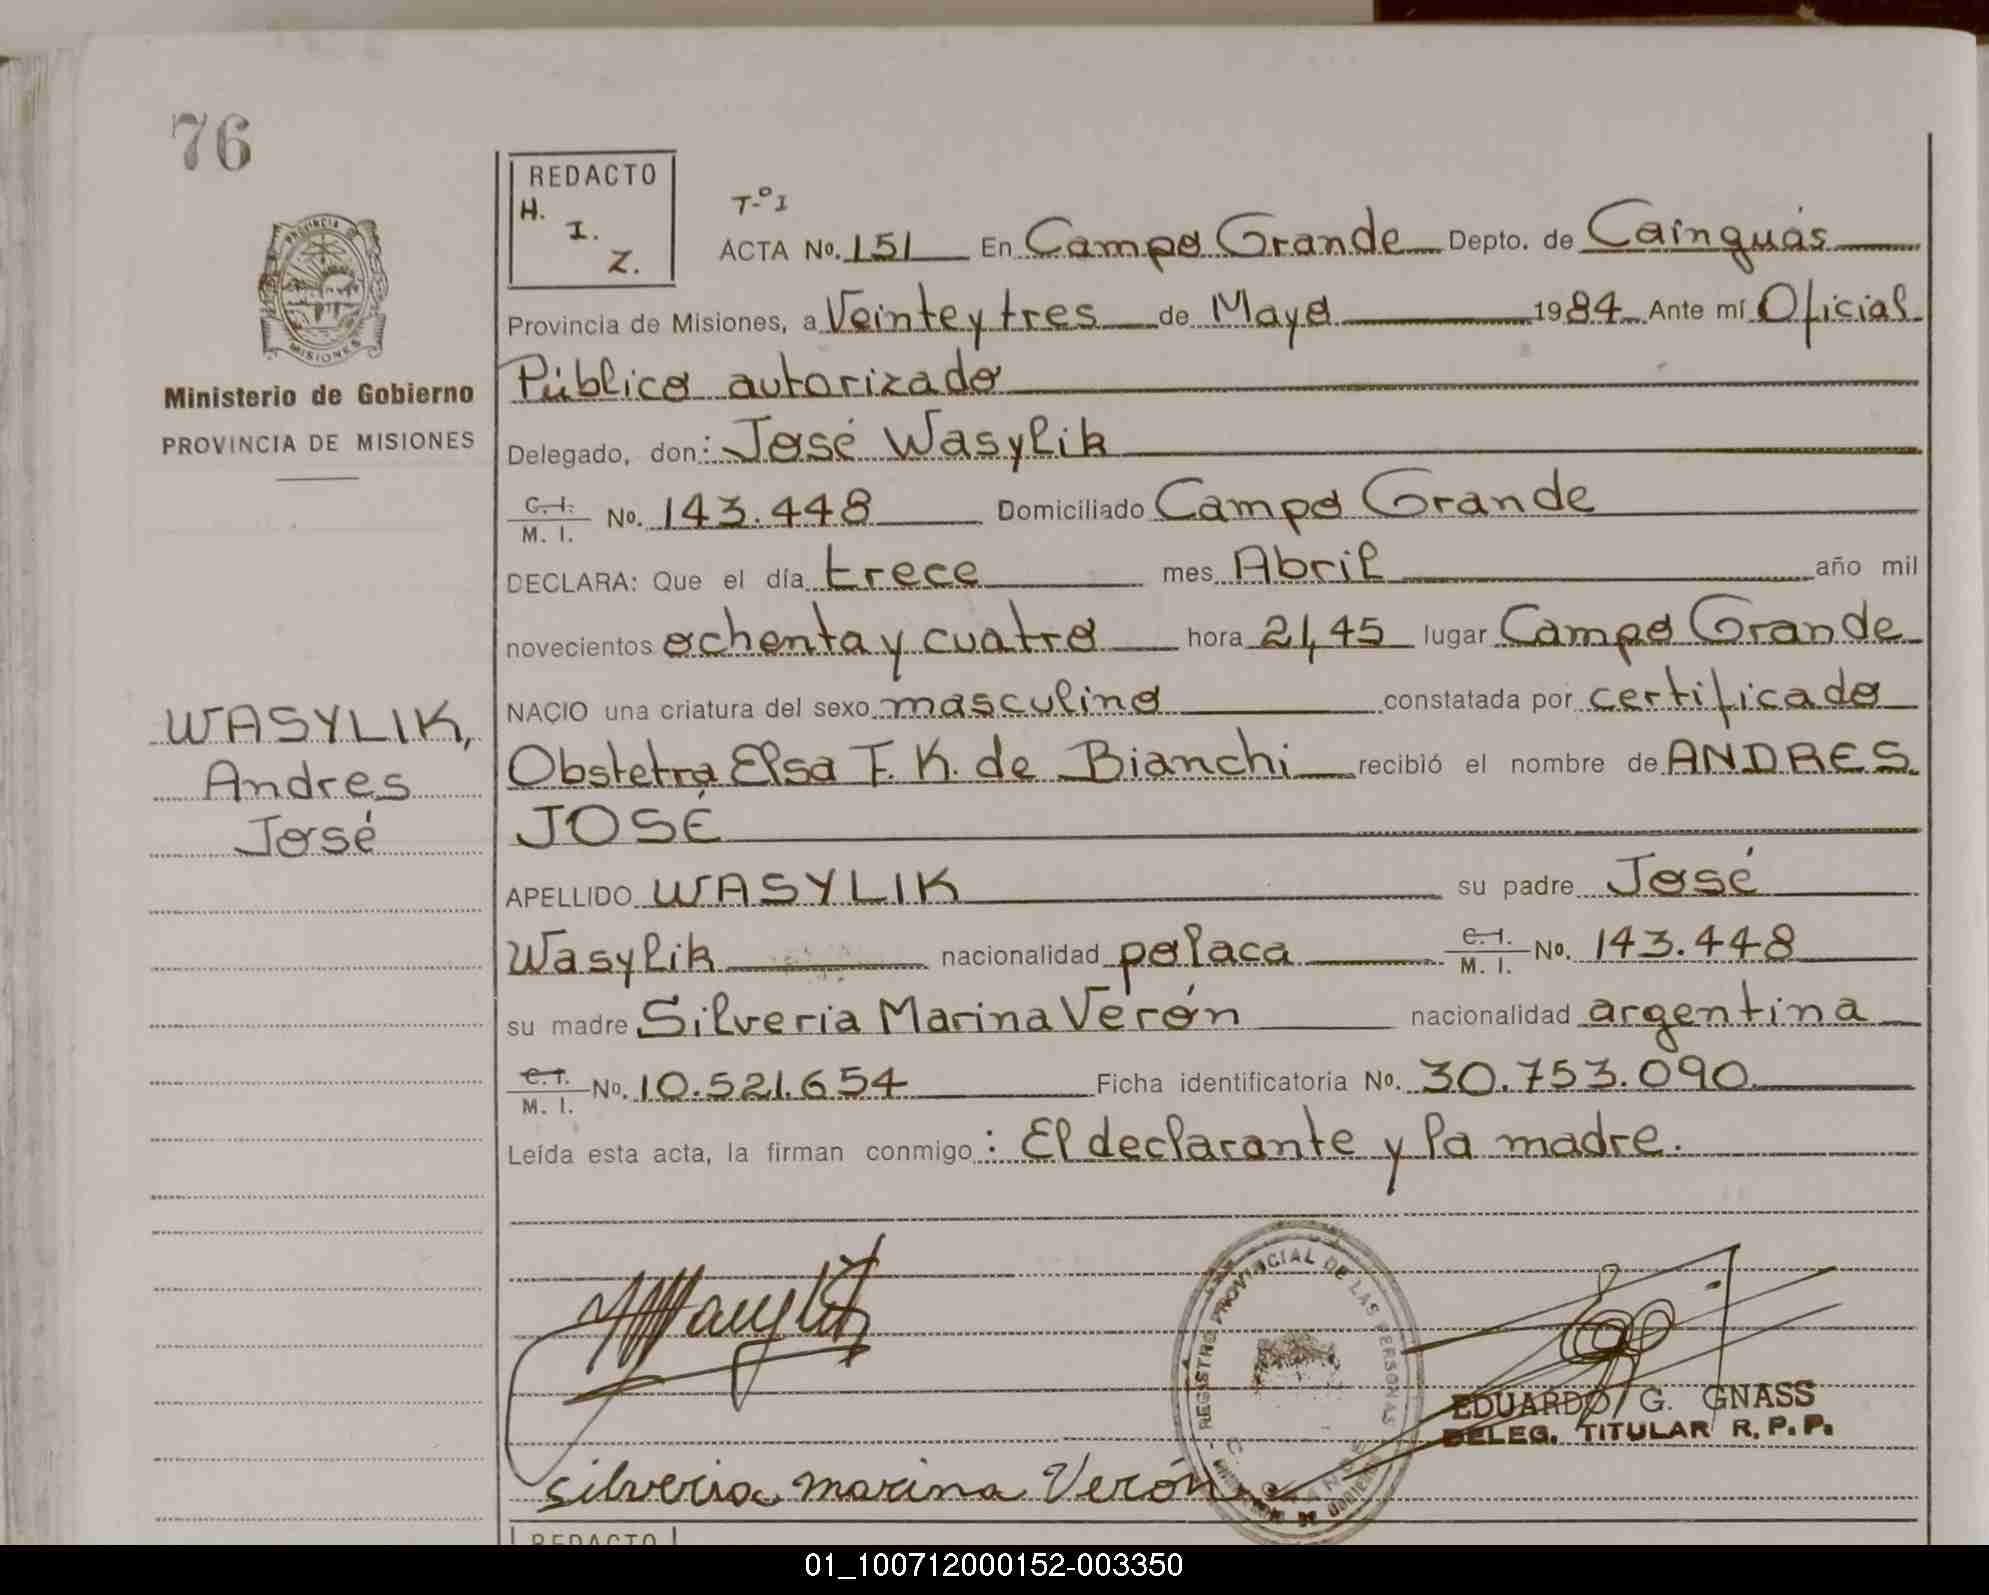 76
PROVINCIA DE
MISIONES
Ministerio de Gobierno
PROVINCIA DE MISIONES
WASYLIK,
Andres
José
REDACTO
H.
I.
Z.
T.º I
ACTA No. 151 En Campo Grande Depto. de Cainguás
Provincia de Misiones, a Veinte y tres de Mayo 1984 Ante mí Oficial
Público autorizado
Delegado, don: José Wasylik
C. I. M. I. No. 143.448 Domiciliado Campo Grande
DECLARA: Que el día trece mes Abril año mil
novecientos ochenta y cuatro hora 21,45 lugar Campo Grande
NACIO una criatura del sexo masculino constatada por certificado
Obstetra Elsa F. K. de Bianchi recibió el nombre de ANDRES
JOSÉ
APELLIDO WASYLIK su padre José
Wasylik nacionalidad polaca C. I. M. I. No. 143.448
su madre Silveria Marina Verón nacionalidad argentina
C. I. M. I. No. 10.521.654 Ficha identificatoria No. 30.753.090
Leída esta acta, la firman conmigo: El declarante y la madre.
REGISTRO PROVINCIAL DE LAS PERSONAS
EDUARDO G. GNASS
DELEG. TITULAR R. P. P.
silveria marina Verón
REDACTO
01_100712000152-003350